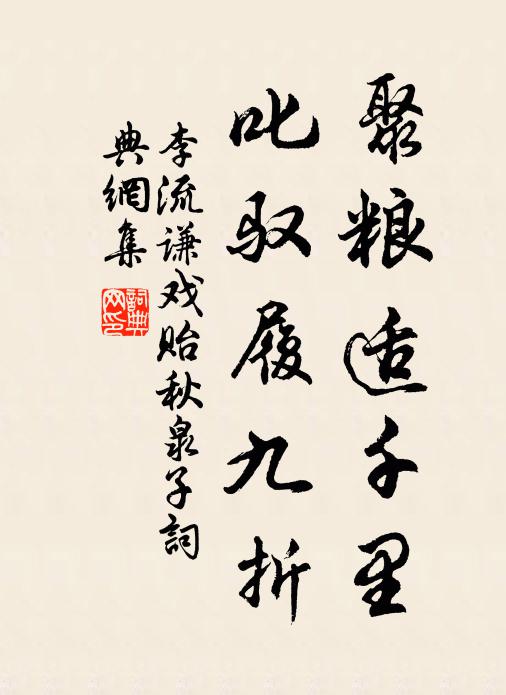 聚粮适千里
叱驭履九折
李流谦戏贻秋泉子詞
典網集
詞典网印